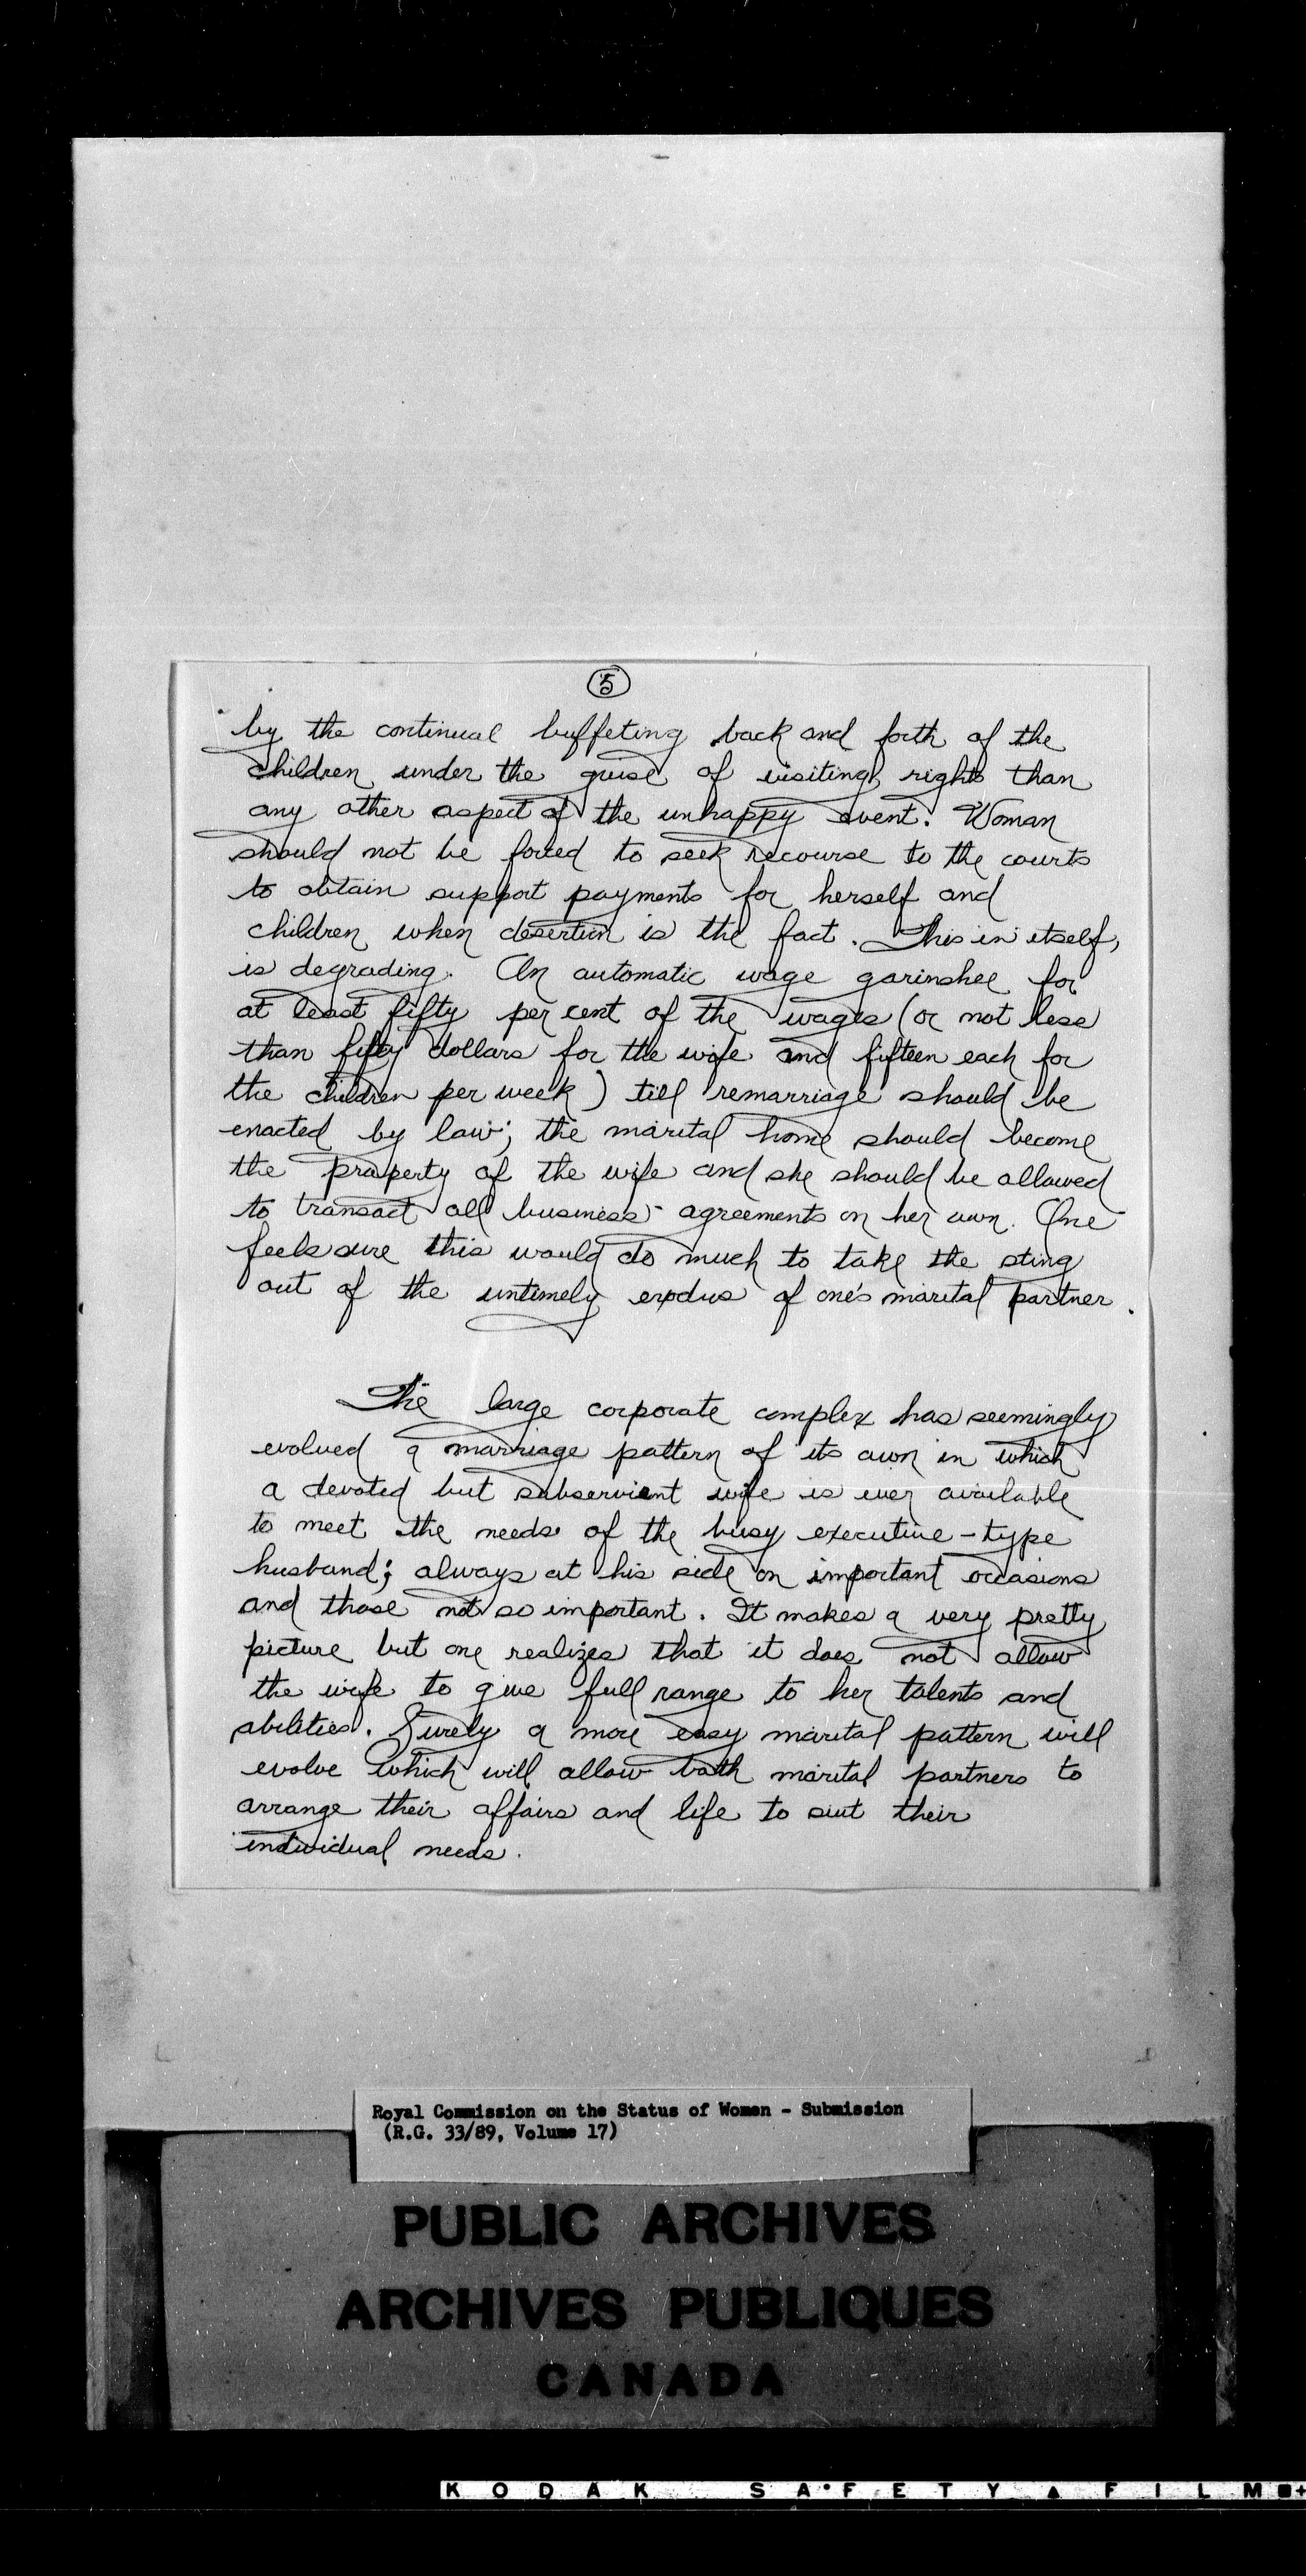 5
by the continual buffeting back and forth of the
children under the guise of visiting rights than
any other aspect of the unhappy event. Woman
should not be forced to seek recourse to the courts
to obtain support payments for herself and
children when desertion is the fact. This in itself,
is degrading. An automatic wage garinshee for
at least fifty per cent of the wages (or not less
than fifty dollars for the wife and fifteen each for
the children per week) till remarriage should be
enacted by law; the marital home should become
the property of the wife and she should be allowed
to transact all business agreements on her own. One
feels sure this would do much to take the sting
out of the untimely exodus of one's marital partner.
The large corporate complex has seemingly
evolved a marriage pattern of its own in which
a devoted but subservient wife is ever available
to meet the needs of the busy executive-type
husband; always at his side on important occasions
and those not so important. It makes a very pretty
picture but one realizes that it does not allow
the wife to give full range to her talents and
abilities. Surely a more easy marital pattern will
evolve which will allow both marital partners to
arrange their affairs and life to suit their
individual needs.
Royal Commission on the Status of Women - Submission
(R.G. 33/89, Volume 17)
PUBLIC ARCHIVES
ARCHIVES PUBLIQUES
CANADA
KODAK SAFETY FILM